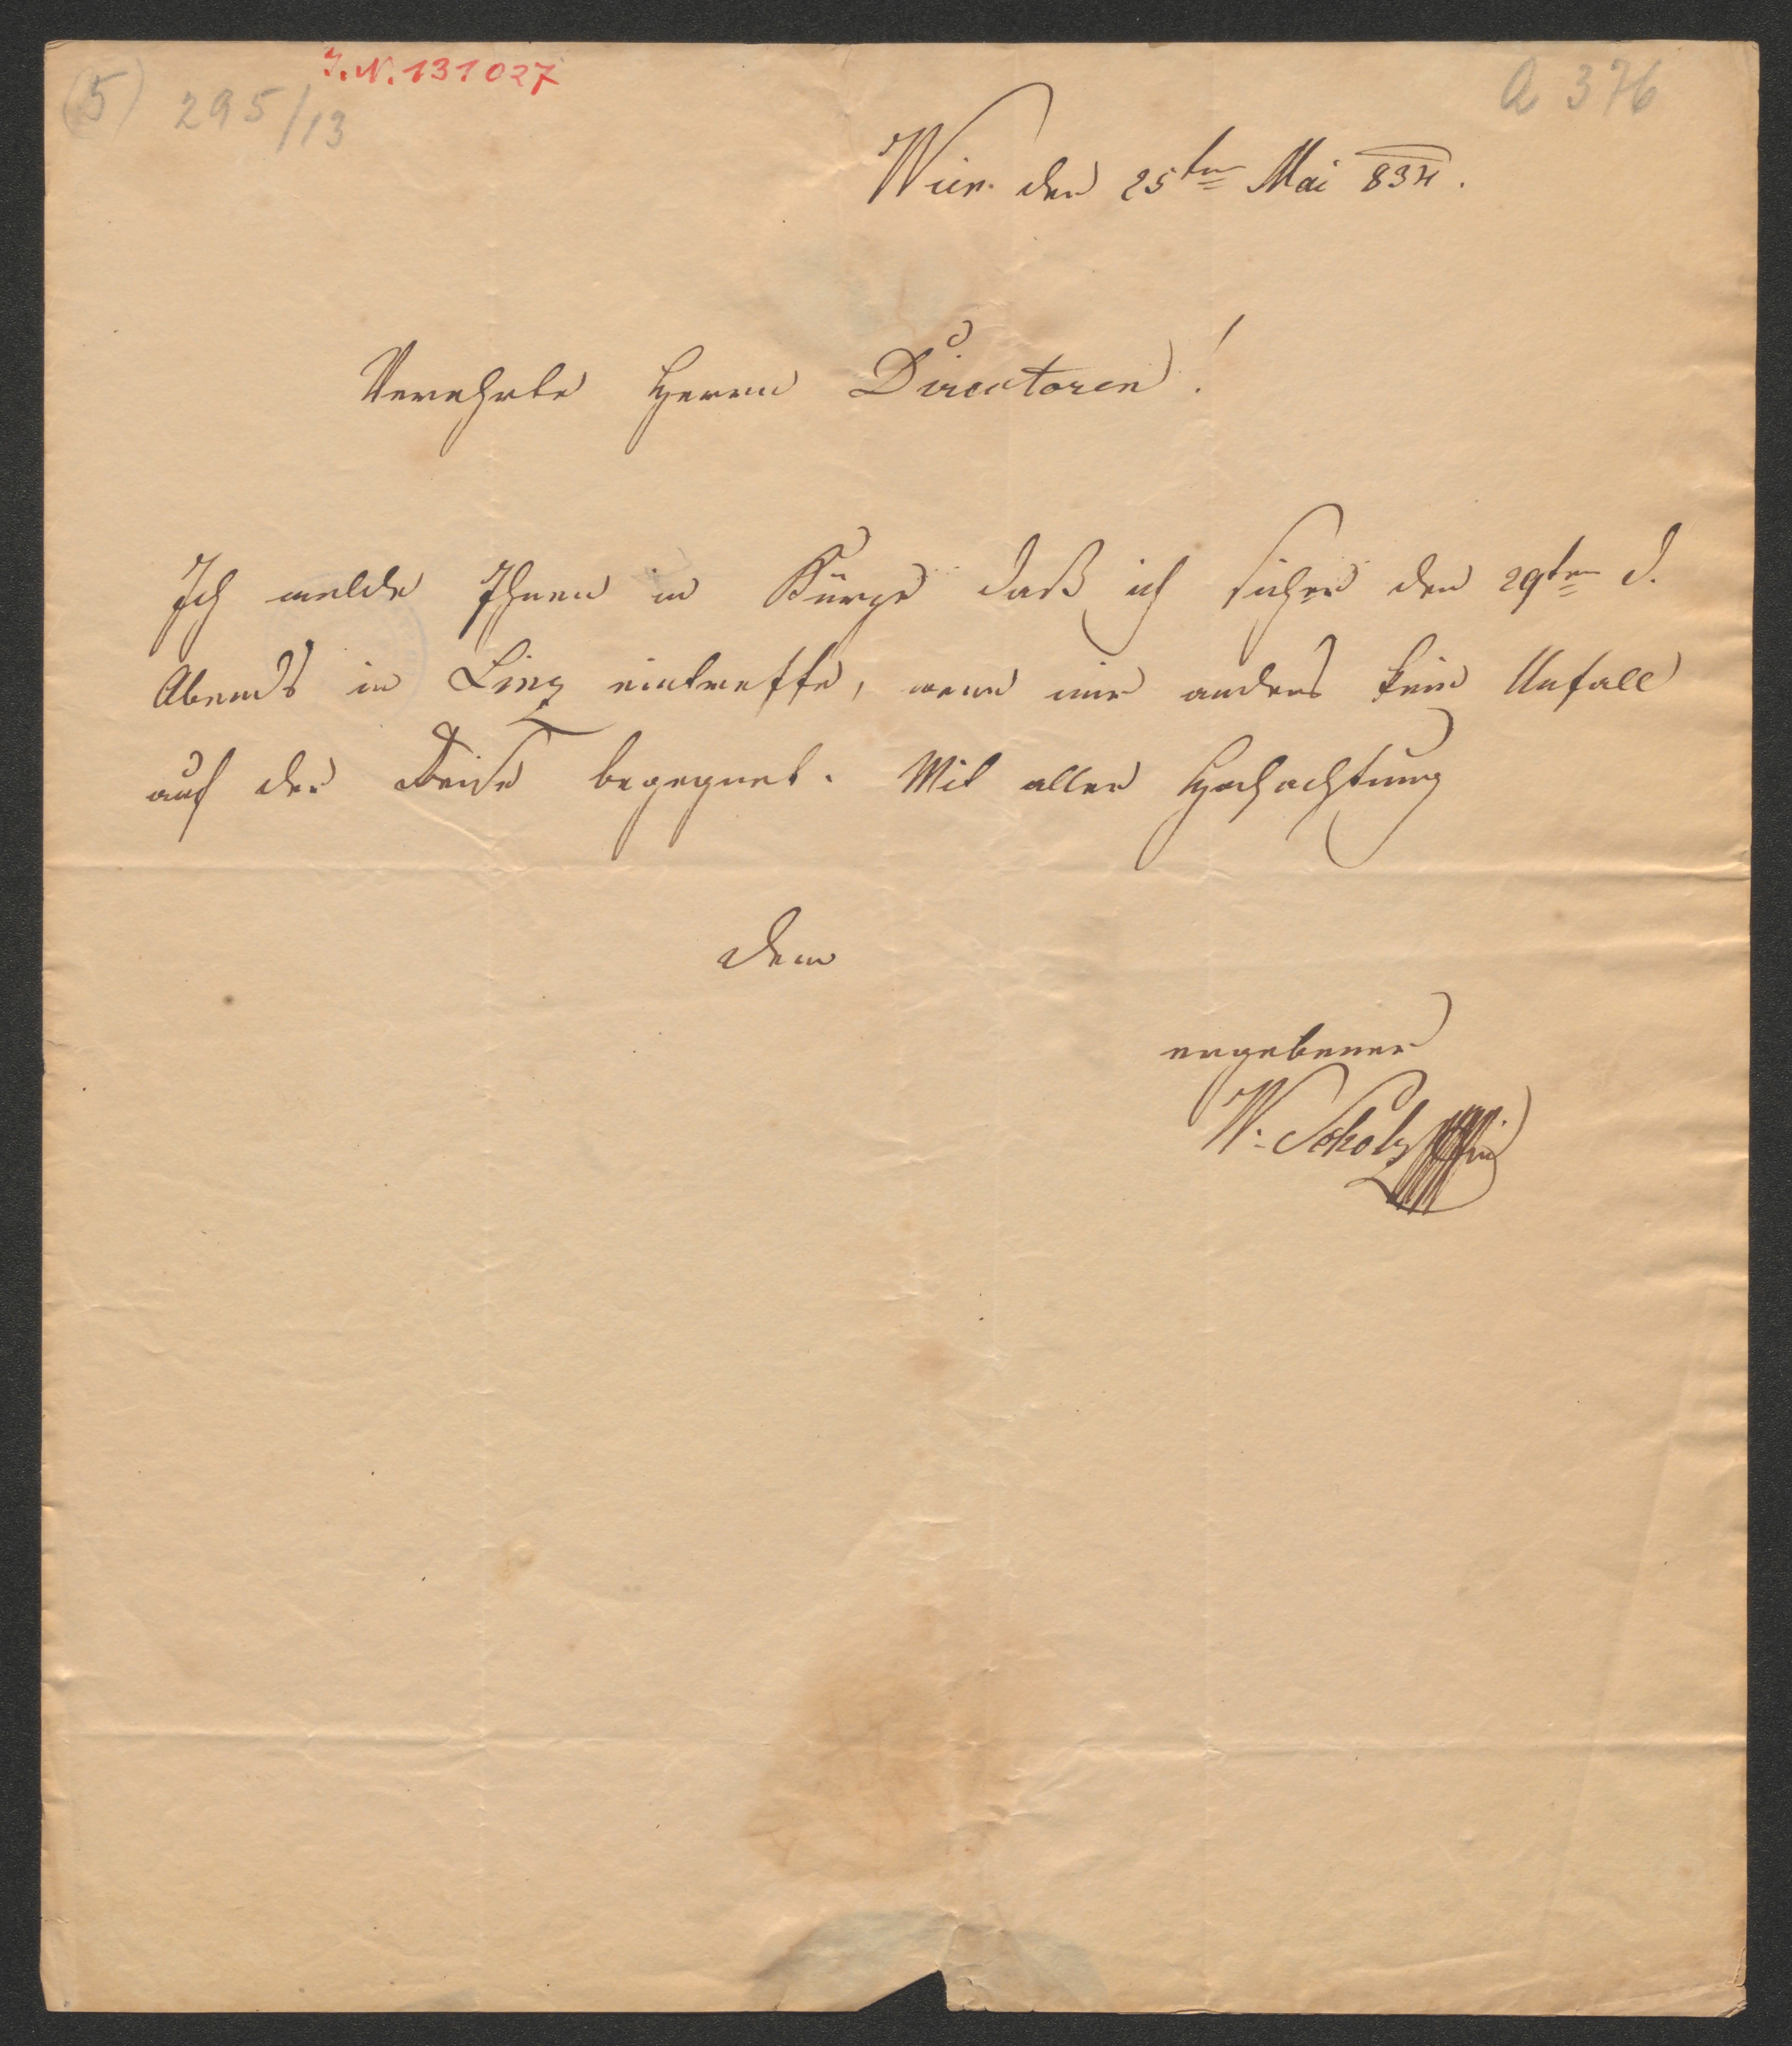 (5) 295/13
I.N. 131027
A 376
Wien den 25ten Mai 834.
Verehrte Herrn Directoren!
Ich melde Ihnen in Kürze daß ich sicher den 29ten d.
Abends in Linz eintreffe, wenn mir anders kein Unfall
auf der Reise begegnet. Mit aller Hochachtung
dero
ergebener
W. Scholz